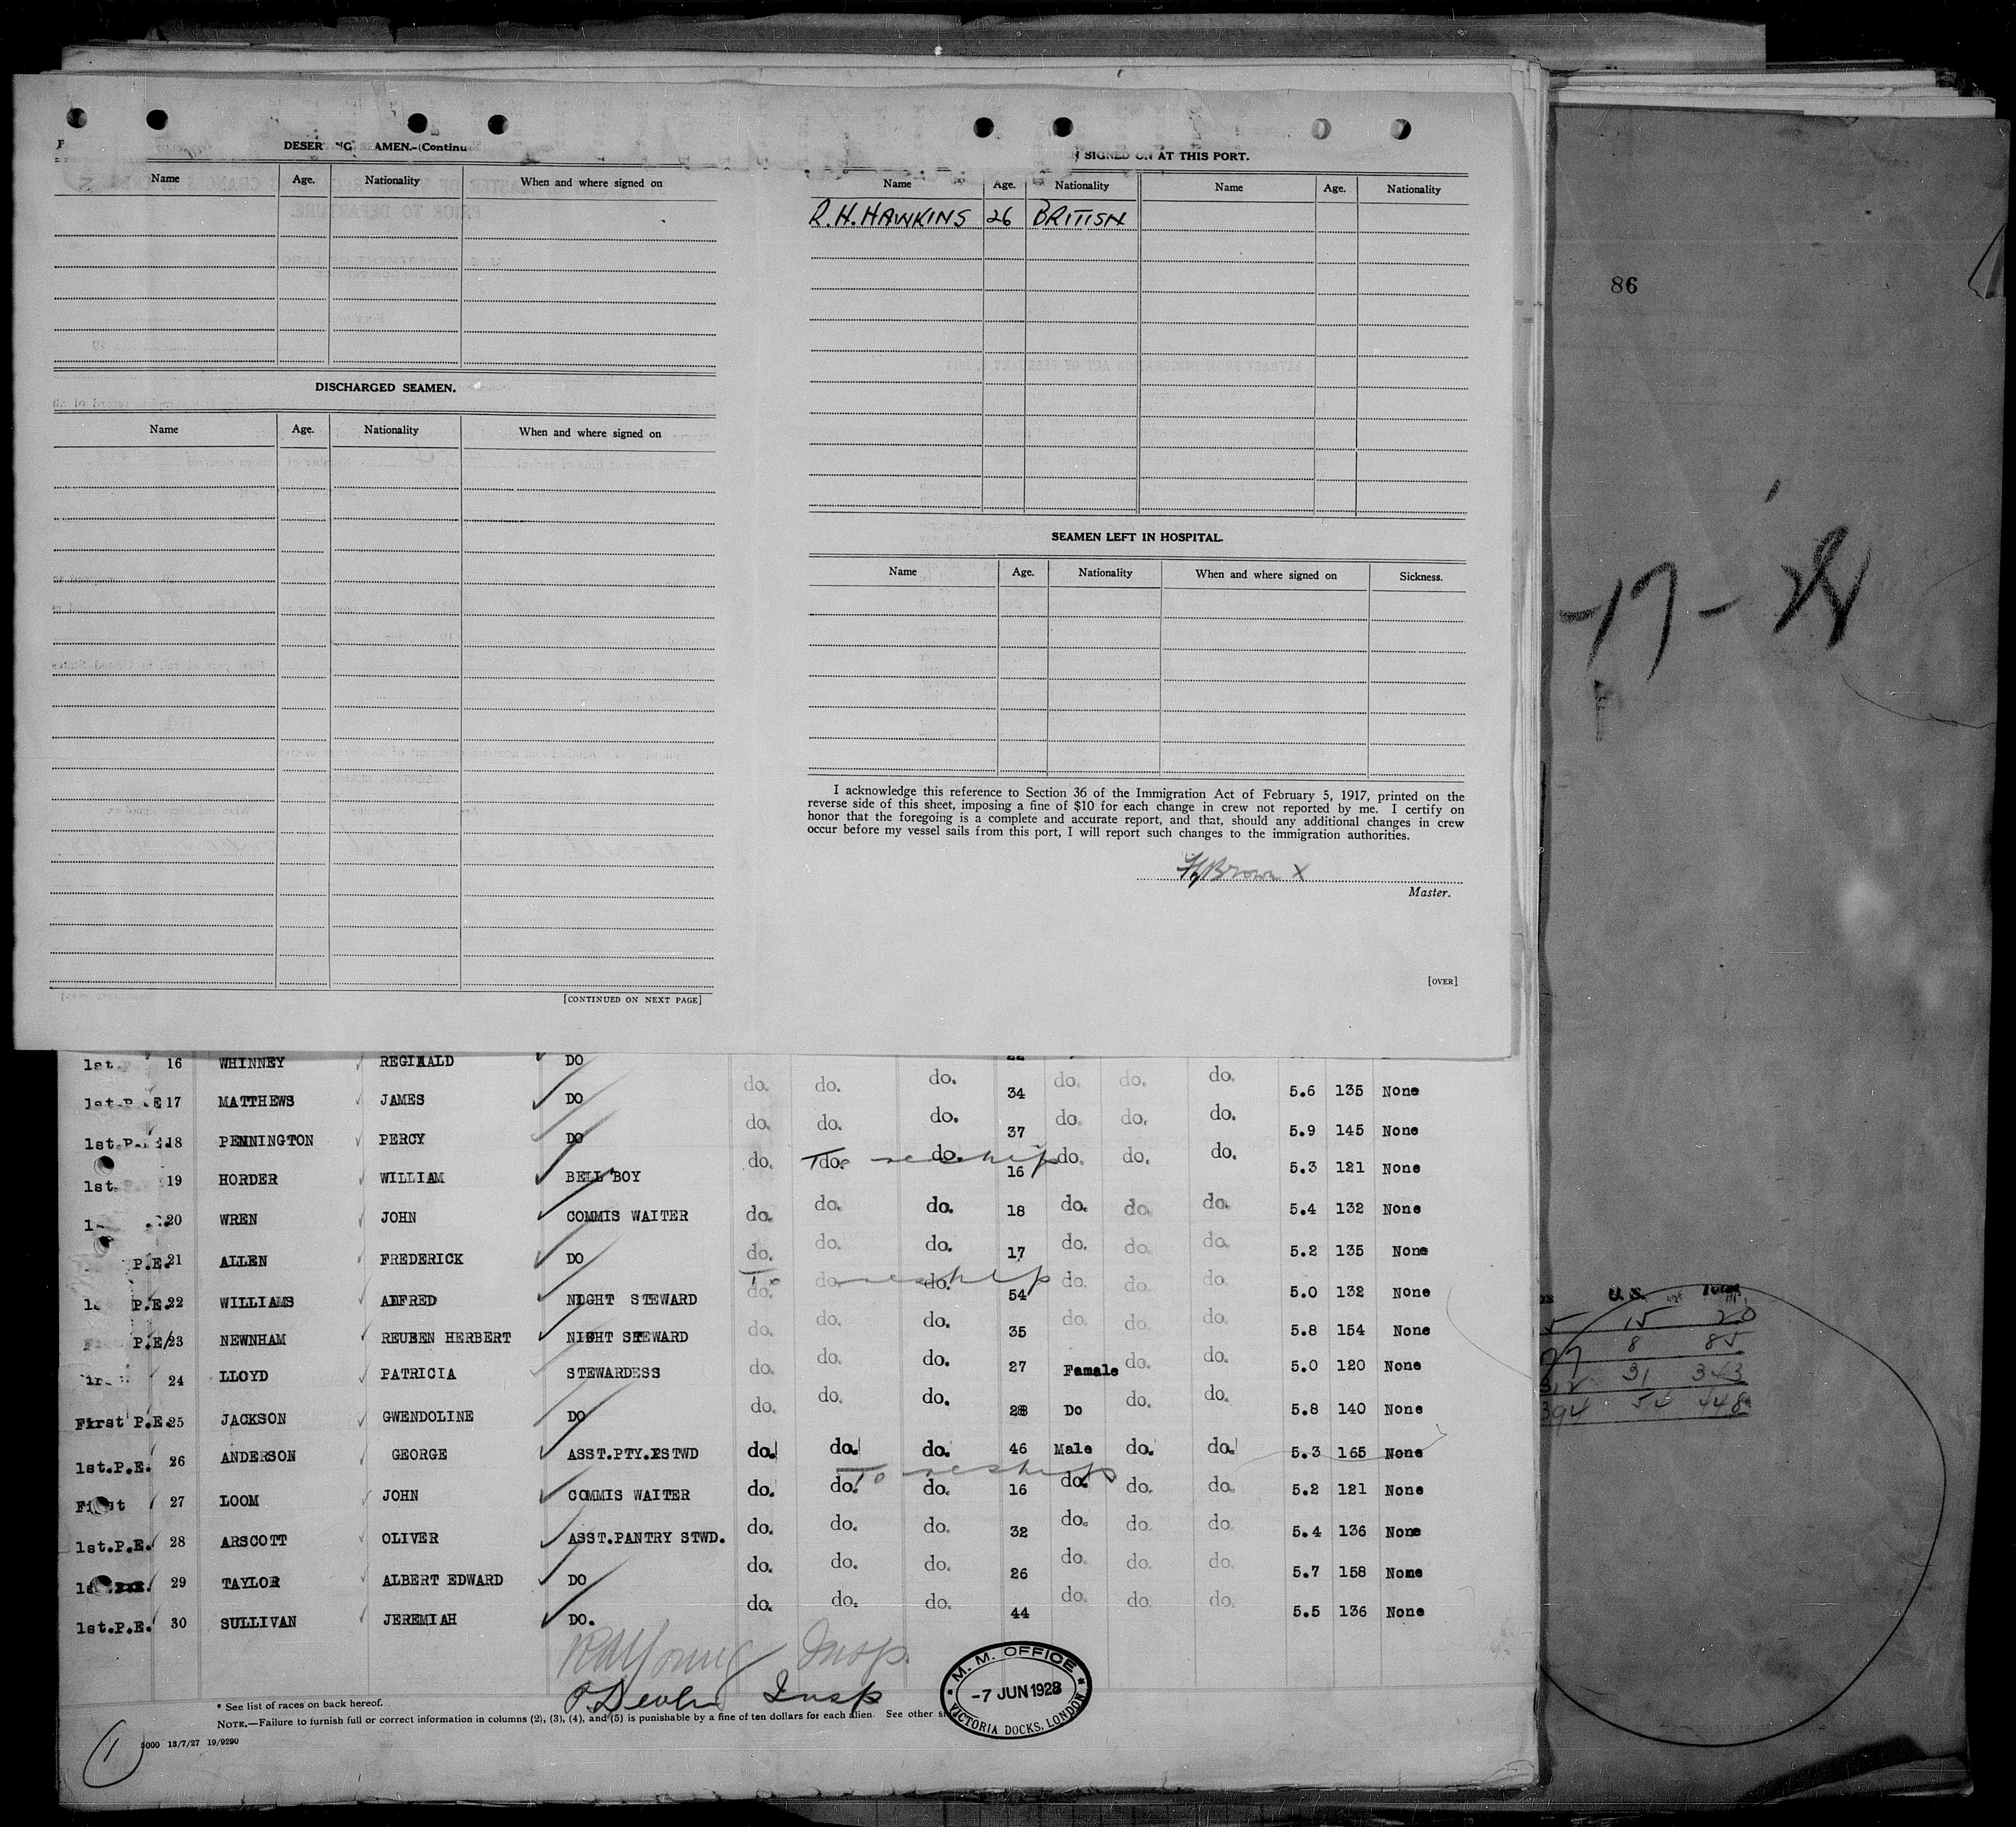 DESER NG AMEN.-(Continu
Name Age. Nationality When and where signed on
DISCHARGED SEAMEN.
Name Age. Nationality When and where signed on
[CONTINUED ON NEXT PAGE]
SIGNED ON AT THIS PORT.
Name Age. Nationality Name Age. Nationality
R.H. HAWKINS 26 BRITISH
SEAMEN LEFT IN HOSPITAL.
Name Age. Nationality When and where signed on Sickness.
I acknowledge this reference to Section 36 of the Immigration Act of February 5, 1917, printed on the
reverse side of this sheet, imposing a fine of $10 for each change in crew not reported by me. I certify on
honor that the foregoing is a complete and accurate report, and that, should any additional changes in crew
occur before my vessel sails from this port, I will report such changes to the immigration authorities.
Brown X
Master.
[OVER]
1st. 16 WHINNEY REGINALD DO 22
1st.P.E 17 MATTHEWS JAMES DO do. do. do. 34 do. do. do. 5.6 135 None
1st.P. 18 PENNINGTON PERCY DO do. do. do. 37 do. do. do. 5.9 145 None
1st. 19 HORDER WILLIAM BELL BOY do. do. do. 16 do. do. do. 5.3 121 None
To reship
20 WREN JOHN COMMIS WAITER do. do. do. 18 do. do. do. 5.4 132 None
P.E. 21 ALLEN FREDERICK DO do. do. do. 17 do. do. do. 5.2 135 None
To reship
P.E. 22 WILLIAMS ALFRED NIGHT STEWARD do. do. do. 54 do. do. do. 5.0 132 None
P.E/ 23 NEWNHAM REUBEN HERBERT NIGHT STEWARD do. do. do. 35 do. do. do. 5.8 154 None
24 LLOYD PATRICIA STEWARDESS do. do. do. 27 Female do. do. 5.0 120 None
First P.E. 25 JACKSON GWENDOLINE DO do. do. do. 28 Do do. do. 5.8 140 None
1st.P.E. 26 ANDERSON GEORGE ASST.PTY.STWD do. do. do. 46 Male do. do. 5.3 165 None
To reship
First 27 LOOM JOHN COMMIS WAITER do. do. do. 16 do. do. do. 5.2 121 None
1st.P.E. 28 ARSCOTT OLIVER ASST.PANTRY STWD. do. do. do. 32 do. do. do. 5.4 136 None
29 TAYLOR ALBERT EDWARD DO do. do. do. 26 do. do. do. 5.7 158 None
1st.P.E. 30 SULLIVAN JEREMIAH DO. do. do. do. 44 do. do. do. 5.5 136 None
Young Insp.
Insp
M. M. OFFICE
-7 JUN 1928
VICTORIA DOCKS, LONDON
* See list of races on back hereof.
NOTE.—Failure to furnish full or correct information in columns (2), (3), (4), and (5) is punishable by a fine of ten dollars for each alien. See other
5000 13/7/27 19/9290
1
86
-17-28
U.S. Total
5 15 20
77 8 85
312 31 343
394 54 448